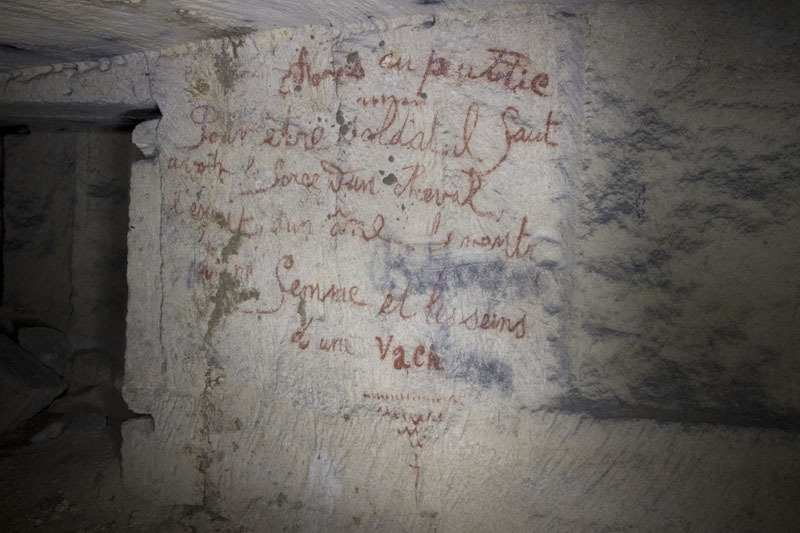 en pattie
Pour être soldat il faut
avoir la force d'un cheval
l'esprit d'un âne le montre
d'une femme et les seins
d'une vach